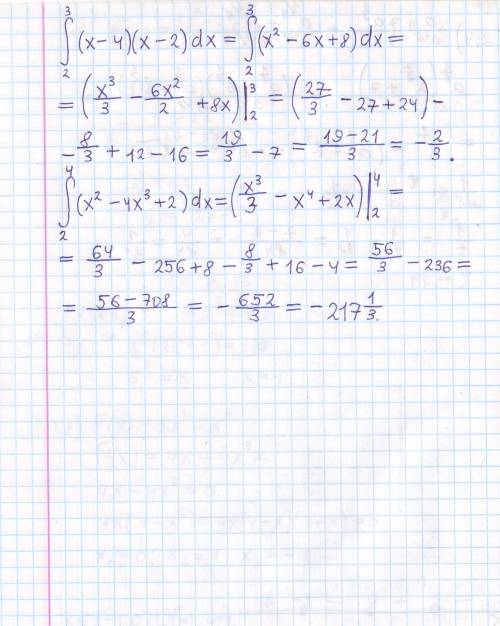 ∫₂³ (x-4)(x-2) dx = ∫₂³ (x² - 6x + 8) dx =
= (x³/3 - 6x²/2 + 8x) |₂³ = (27/3 - 27 + 24) -
- 8/3 + 12 - 16 = 19/3 - 7 = (19-21)/3 = -2/3.
∫₂⁴ (x² - 4x³ + 2) dx = (x³/3 - x⁴ + 2x) |₂⁴ =
= 64/3 - 256 + 8 - 8/3 + 16 - 4 = 56/3 - 236 =
= (56-708)/3 = -652/3 = -217 1/3.